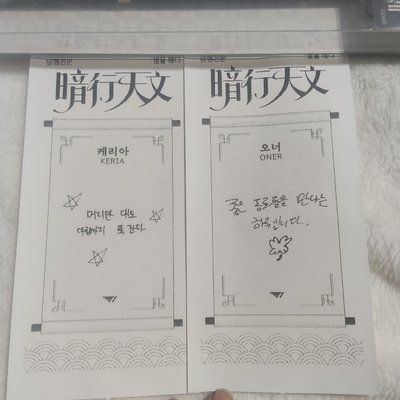 암행천문 별을 헤다
暗行天文
케리아
KERIA
머리만 대도
아침까지 푹 잔다
암행천문 별을 헤다
暗行天文
오너
ONER
좋은 동료들을 만나는
하루입니다.